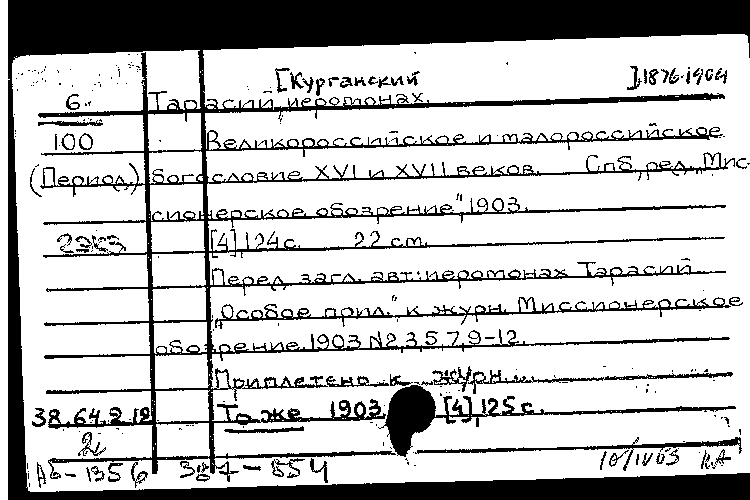 [Курганский ], 1876-1904
6. Тарасий, иеромонах.
100 Великороссийское и малороссийское
(Период.) богословие XVI и XVII веков. Спб, ред. „Мис-
сионерское обозрение", 1903.
2экз [4], 124 с. 22 см.
Перед загл. авт.: иеромонах Тарасий.
„Особое прил." к журн. Миссионерское
обозрение. 1903 N2,3,5,7,9-12.
Приплетено к журн...
38.64.2.12 То же 1903. [4], 125 с.
2и
Аб-1356 387-554 10/IV03